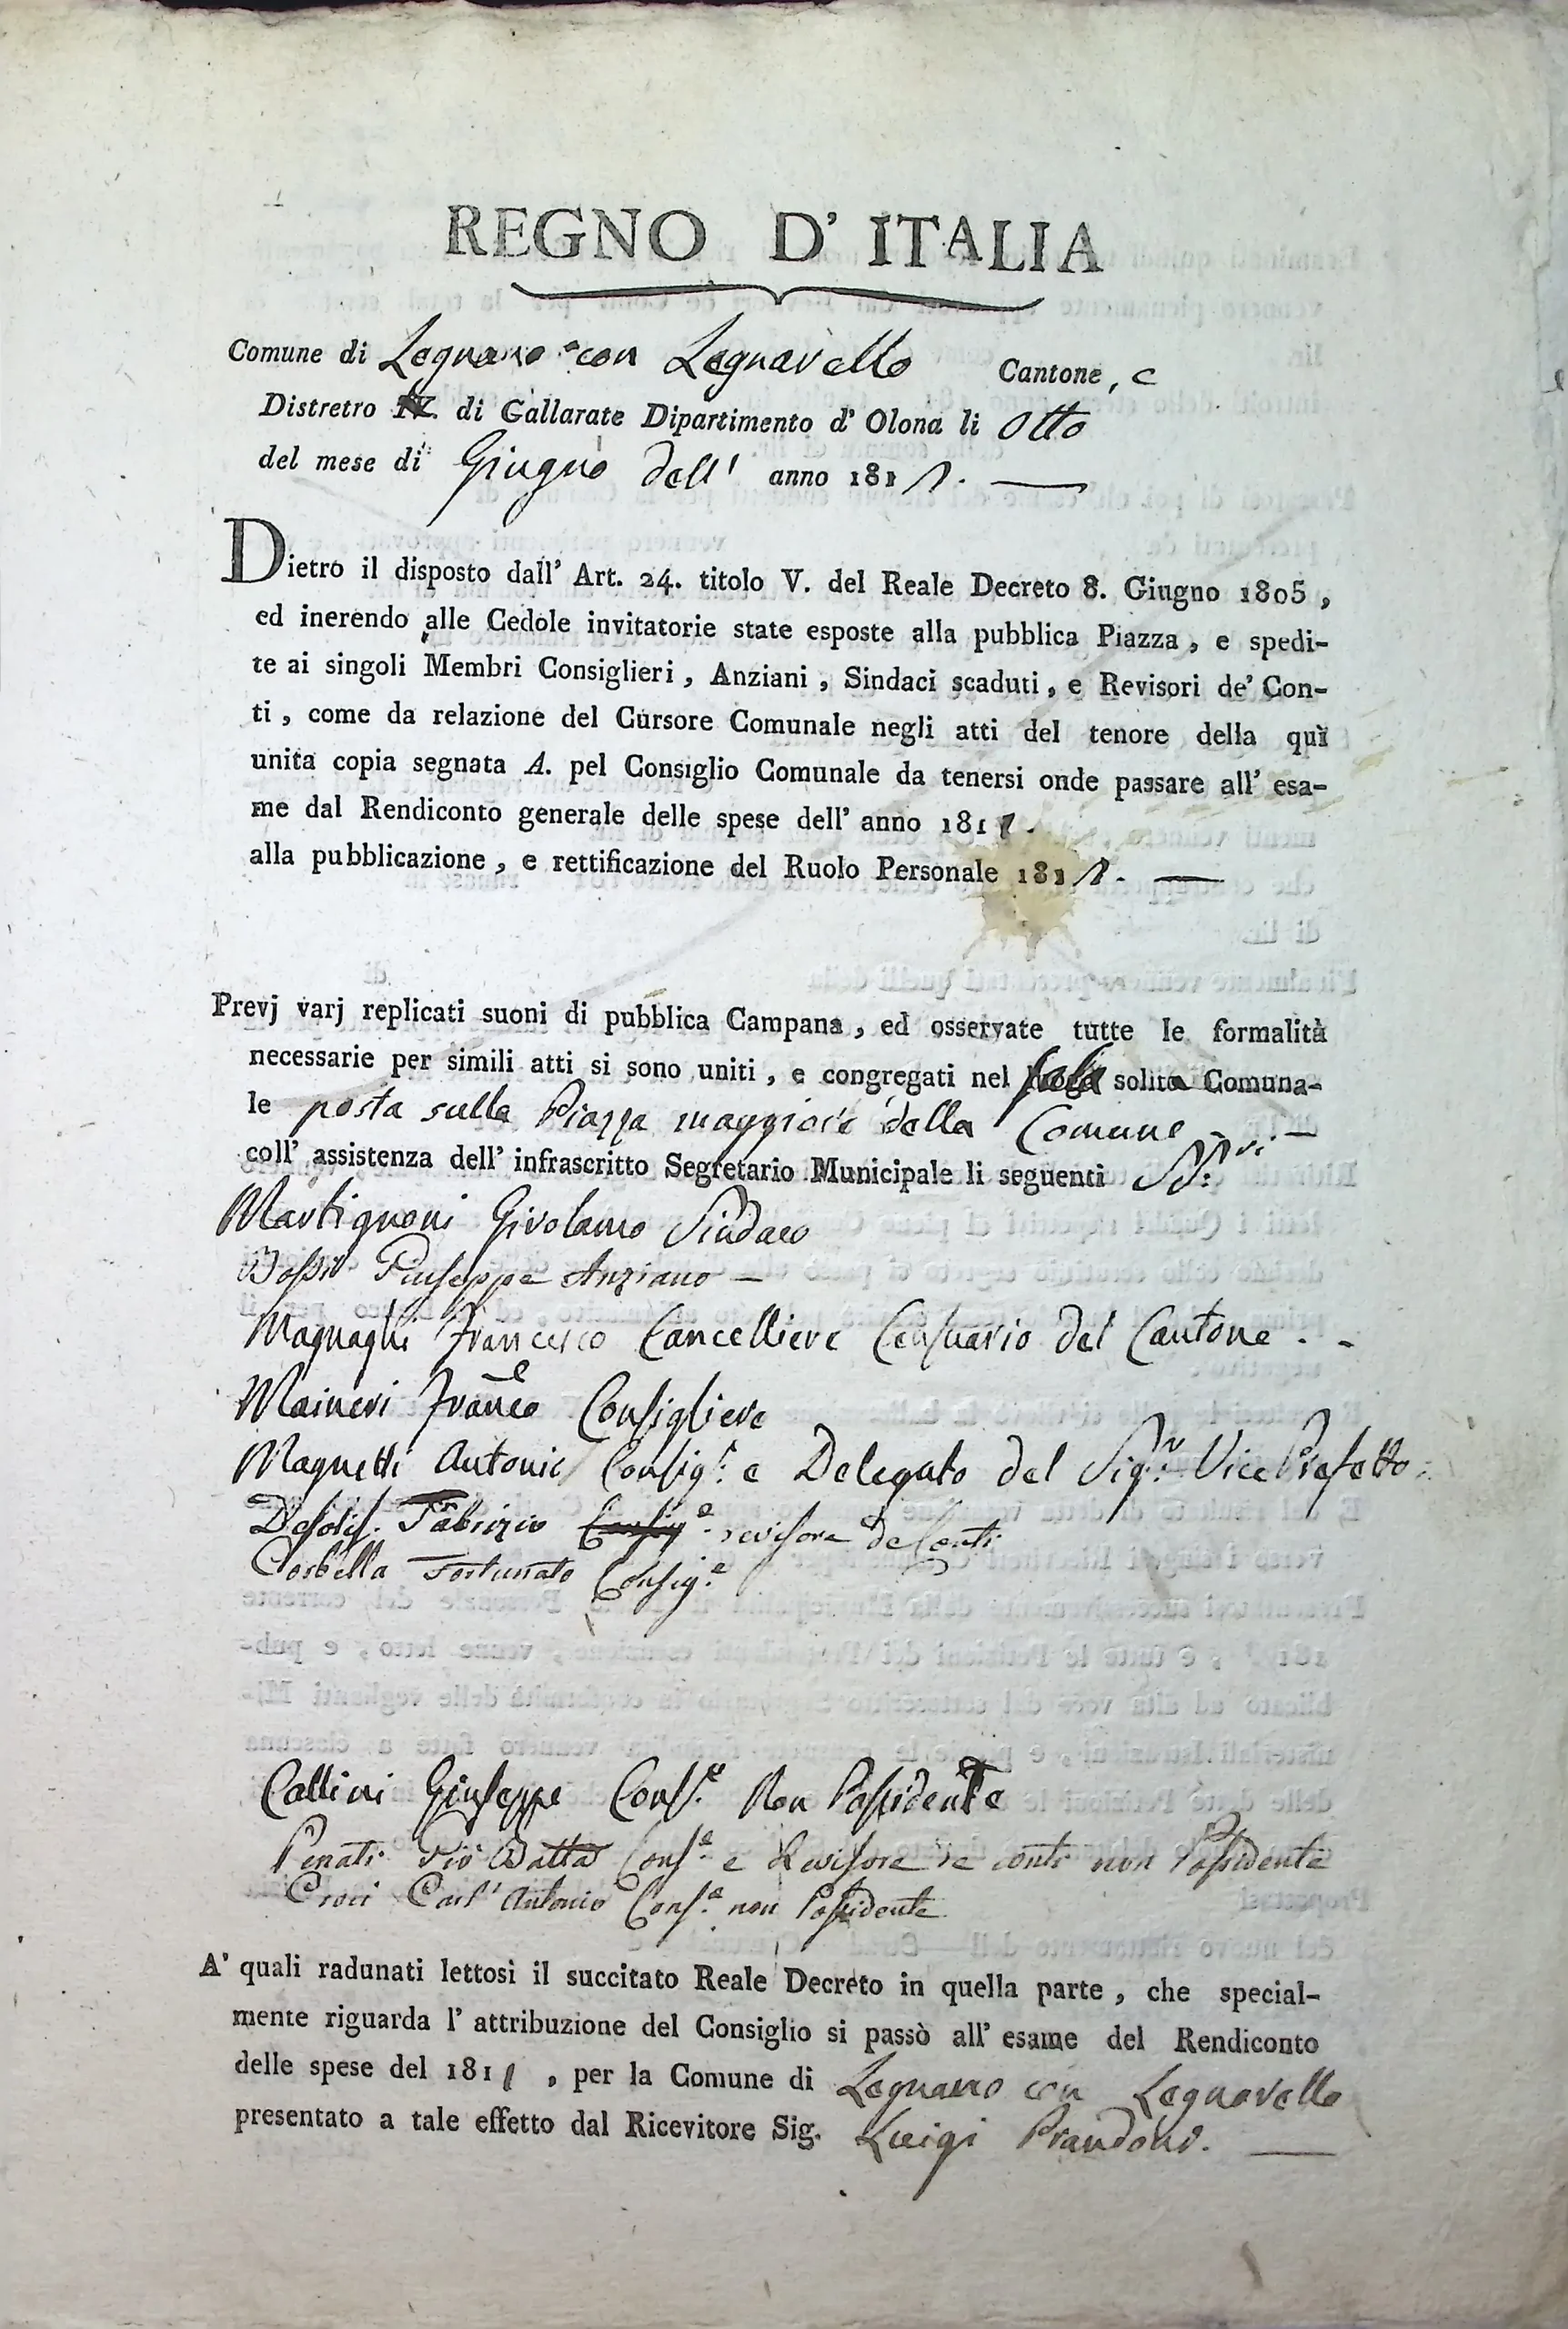 REGNO D' ITALIA
Comune di Legnano con Legnarello Cantone, e
Distretro IV. di Gallarate Dipartimento d' Olona li Otto
del mese di Giugno dell' anno 181
Dietro il disposto dall' Art. 24. titolo V. del Reale Decreto 8. Giugno 1805 ,
ed inerendo alle Cedole invitatorie state esposte alla pubblica Piazza , e spedi-
te ai singoli Membri Consiglieri , Anziani , Sindaci scaduti , e Revisori de' Con-
ti , come da relazione del Cursore Comunale negli atti del tenore della quì
unita copia segnata A. pel Consiglio Comunale da tenersi onde passare all' esa-
me dal Rendiconto generale delle spese dell' anno 181
alla pubblicazione , e rettificazione del Ruolo Personale 181
Prevj varj replicati suoni di pubblica Campana , ed osservate tutte le formalità
necessarie per simili atti si sono uniti , e congregati nel Sala solita Comuna-
le posta sulla Piazza maggiore della Comune
coll' assistenza dell' infrascritto Segretario Municipale li seguenti SS.ri
Martignoni Girolamo Sindaco
Bossi Giuseppe Anziano —
Magnaghi Francesco Cancelliere Censuario del Cantone . -
Maineri Franco Consigliere
Magnetti Antonio Consig.e e Delegato del Sig.r Vice Prefetto
Fabrizio Consig.e revisore de Conti
Corbella Fortunato Consig.e
Callini Giuseppe Cons.e Non Possidente
Penati Gio Batta Cons.e e Revisore de conti non Possidente
Croci Carl' Antonio Cons.e non Possidente
A' quali radunati lettosi il succitato Reale Decreto in quella parte , che special-
mente riguarda l' attribuzione del Consiglio si passò all' esame del Rendiconto
delle spese del 1811 , per la Comune di Legnano con Legnarello
presentato a tale effetto dal Ricevitore Sig. Luigi Prandoni.